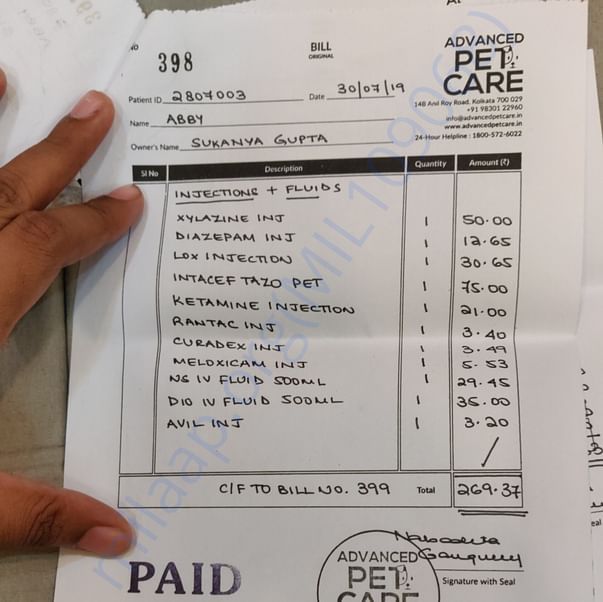 No
398
BILL
ORIGINAL
ADVANCED
PET
CARE
14B Anil Roy Road, Kolkata 700 029
+91 98301 22960
info@advancedpetcare.in
www.advancedpetcare.in
24-Hour Helpline : 1800-572-6022
Patient ID 2807003 Date 30/07/19
Name ABBY
Owner's Name SUKANYA GUPTA
Sl No Description Quantity Amount (₹)
INJECTIONS + FLUIDS
XYLAZINE INJ 1 50.00
DIAZEPAM INJ 1 12.65
LOX INJECTION 1 30.65
INTACEF TAZO PET 1 75.00
KETAMINE INJECTION 1 21.00
RANTAC INJ 1 3.40
CURADEX INJ 1 3.49
MELOXICAM INJ 1 5.53
NS IV FLUID 500ML 1 29.45
D10 IV FLUID 500ML 1 35.00
AVIL INJ 1 3.20
C/F TO BILL NO. 399 Total 269.37
PAID
ADVANCED
PET
CARE
Signature with Seal